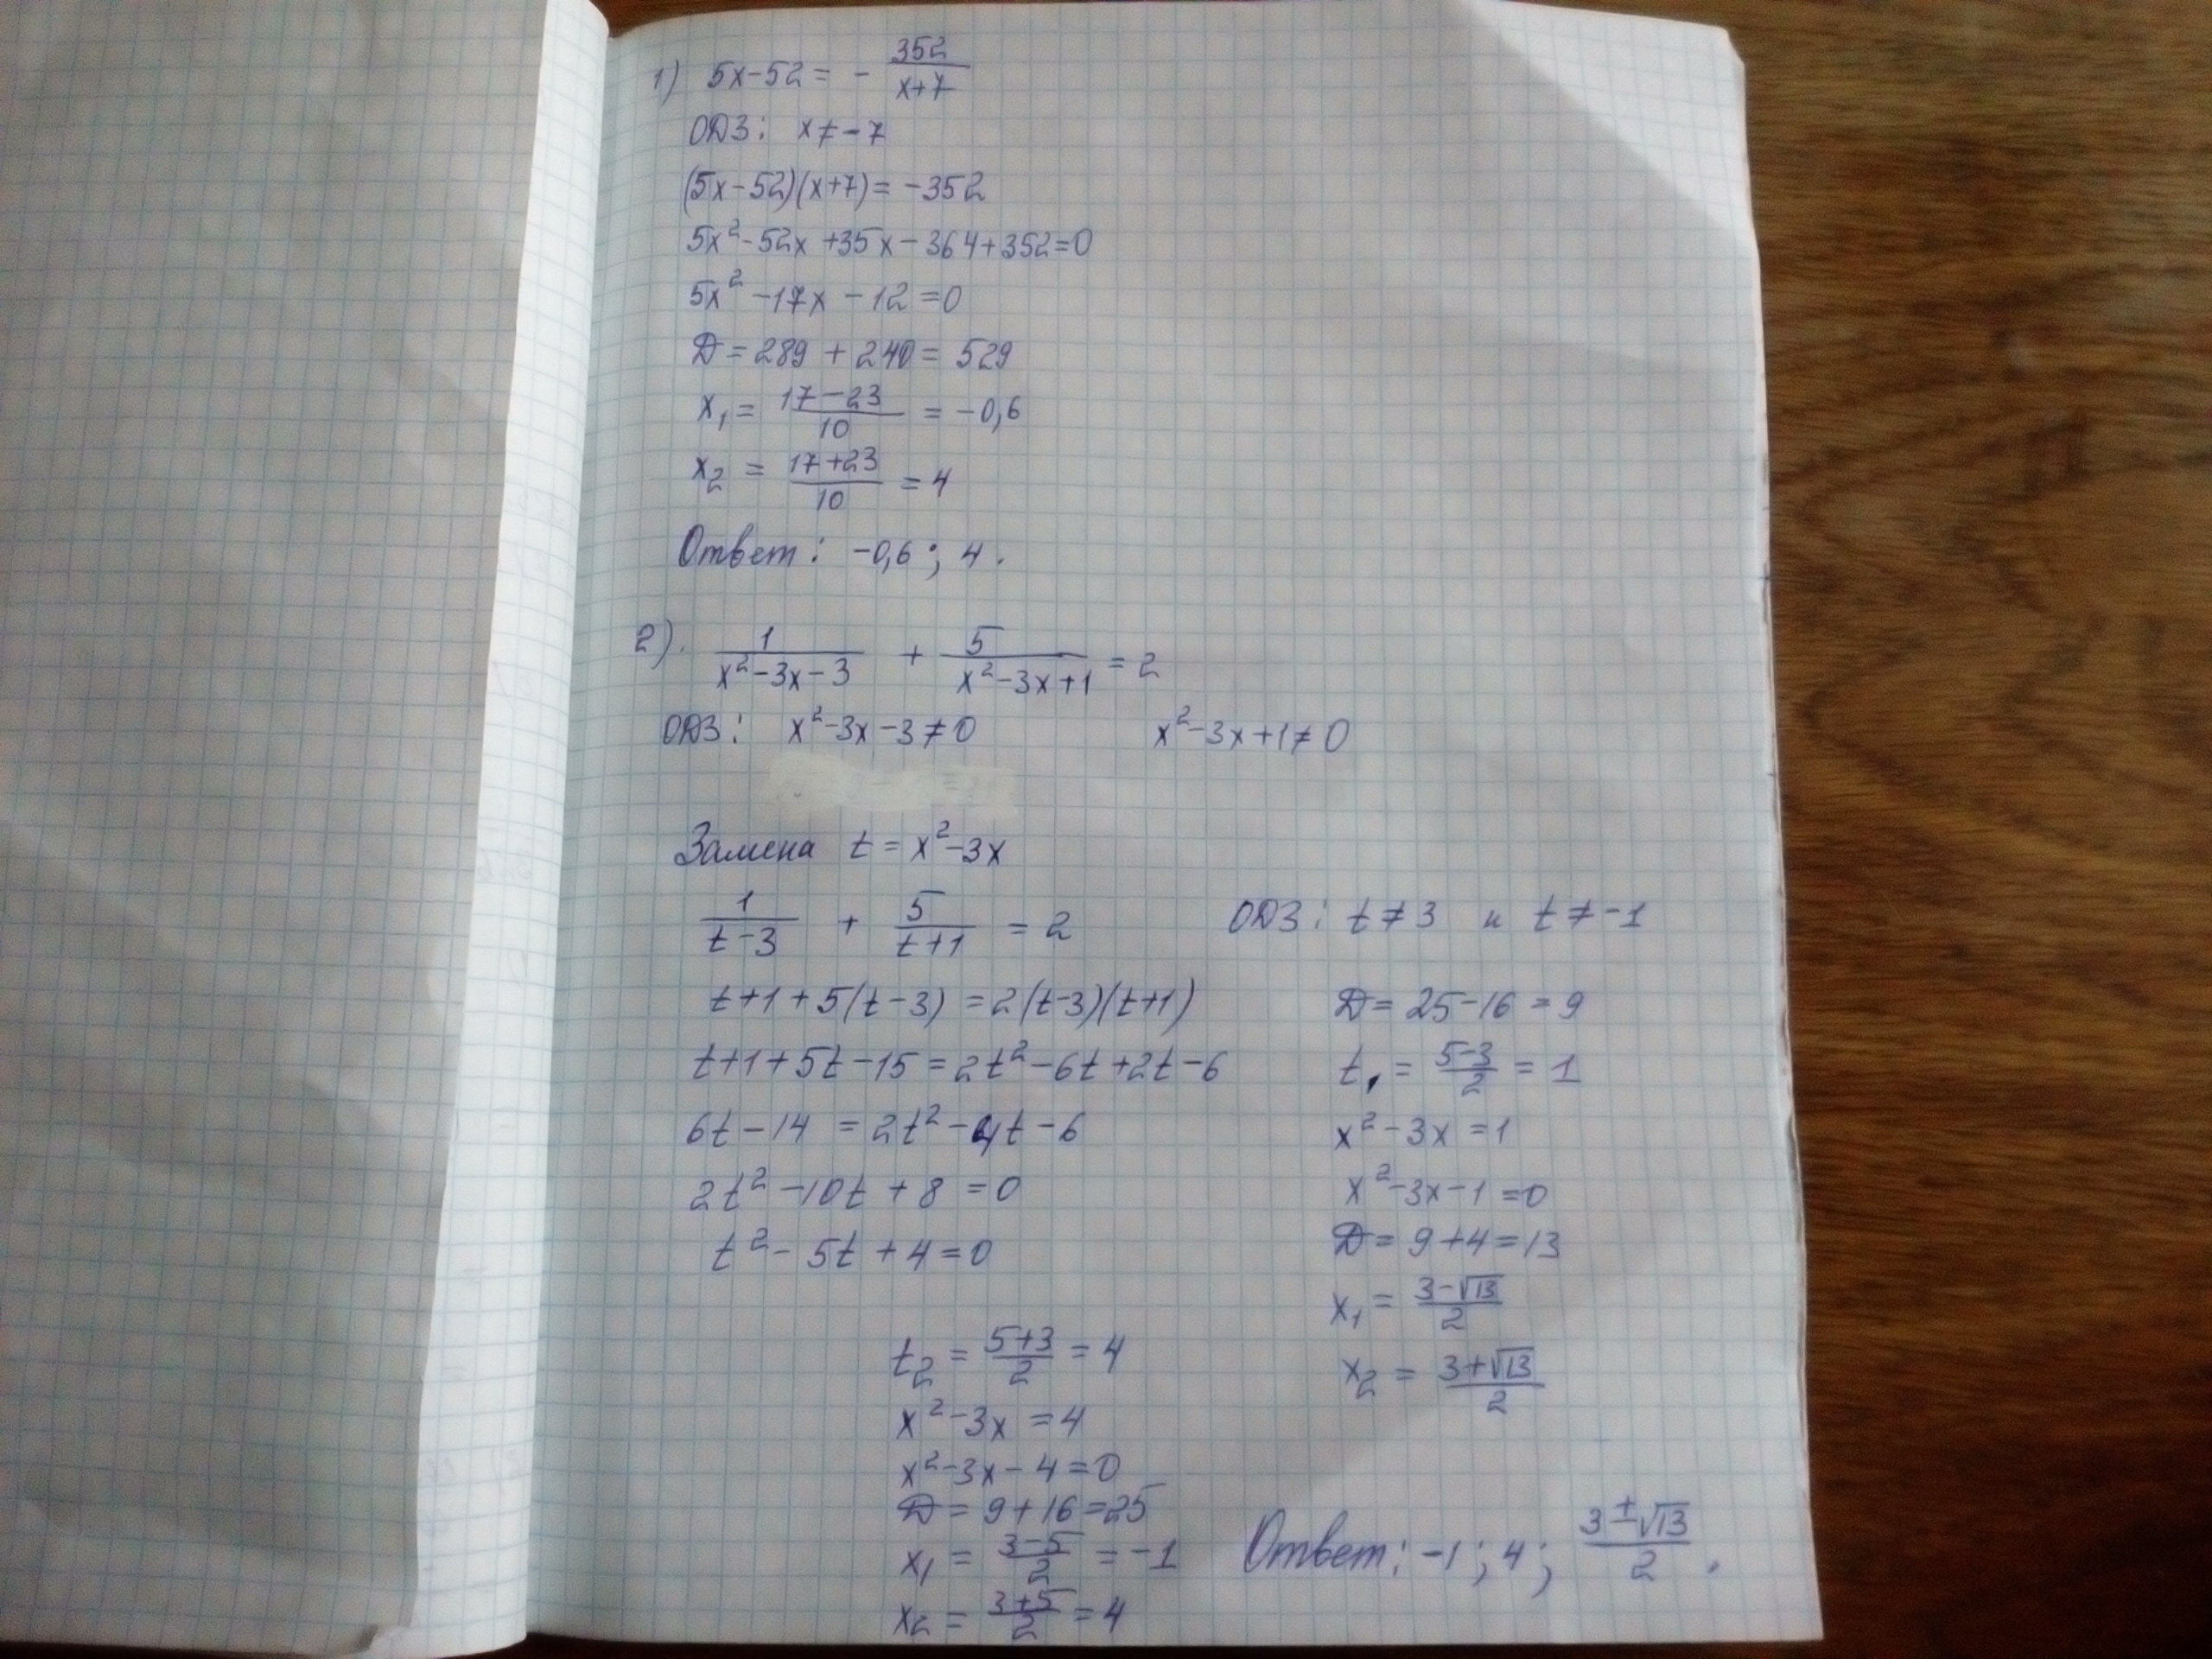 1) 5x-52 = - 352/(x+7)
ОДЗ: x≠-7
(5x-52)(x+7) = -352
5x²-52x+35x-364+352=0
5x²-17x-12=0
D=289+240=529
x₁ = (17-23)/10 = -0,6
x₂ = (17+23)/10 = 4
Ответ: -0,6; 4.
2). 1/(x²-3x-3) + 5/(x²-3x+1) = 2
ОДЗ: x²-3x-3≠0 x²-3x+1≠0
Замена t=x²-3x
1/(t-3) + 5/(t+1) = 2 ОДЗ: t≠3 и t≠-1
t+1+5(t-3) = 2(t-3)(t+1)
t+1+5t-15=2t²-6t+2t-6
6t-14 = 2t²-4t-6
2t²-10t+8=0
t²-5t+4=0
D=25-16=9
t₁ = (5-3)/2 = 1
x²-3x=1
x²-3x-1=0
D=9+4=13
x₁ = (3-√13)/2
x₂ = (3+√13)/2
t₂ = (5+3)/2 = 4
x²-3x=4
x²-3x-4=0
D=9+16=25
x₁ = (3-5)/2 = -1
x₂ = (3+5)/2 = 4
Ответ: -1; 4; (3±√13)/2.